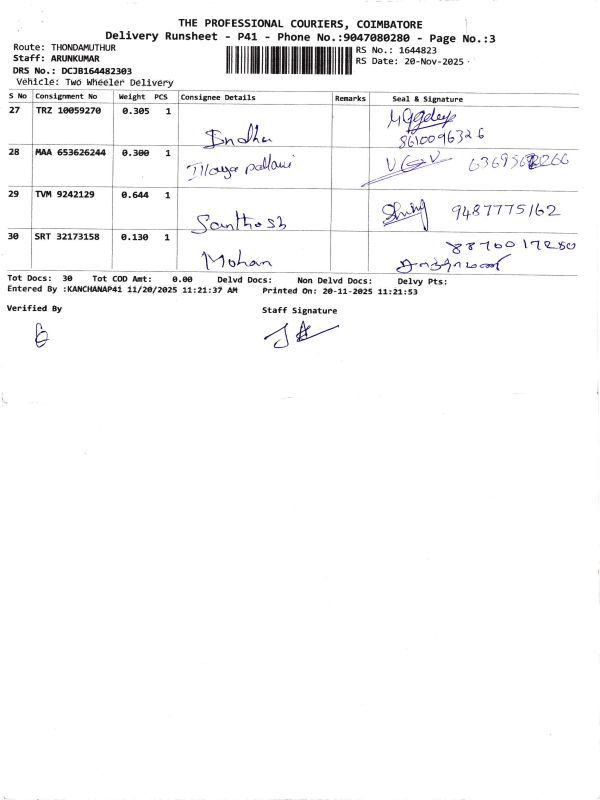 THE PROFESSIONAL COURIERS, COIMBATORE
Delivery Runsheet - P41 - Phone No.:9047080280 - Page No.:3
Route: THONDAMUTHUR
Staff: ARUNKUMAR
DRS No.: DCJB164482303
Vehicle: Two Wheeler Delivery
RS No.: 1644823
RS Date: 20-Nov-2025
S No Consignment No Weight PCS Consignee Details Remarks Seal & Signature
27 TRZ 10059270 0.305 1
Indhu 8610096326
28 MAA 653626244 0.300 1
29 TVM 9242129 0.644 1
Santhosh 9487775162
30 SRT 32173158 0.130 1 8870017280
Mohan
Tot Docs: 30 Tot COD Amt: 0.00 Delvd Docs: Non Delvd Docs: Delvy Pts:
Entered By :KANCHANAP41 11/20/2025 11:21:37 AM Printed On: 20-11-2025 11:21:53
Verified By
Staff Signature